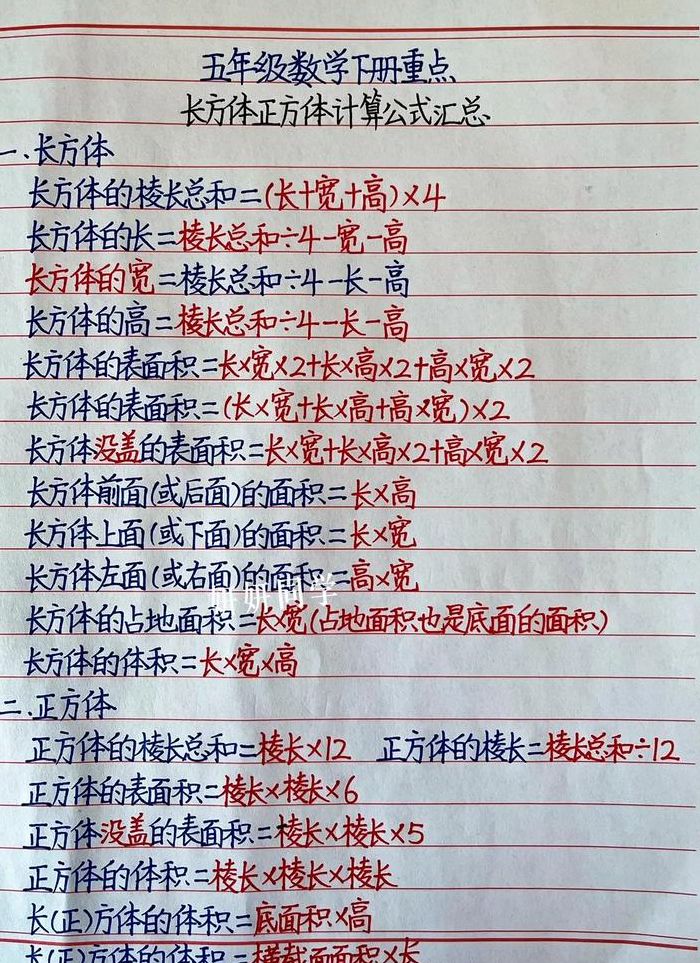 五年级数学下册重点
长方体正方体计算公式汇总
一.长方体
长方体的棱长总和=(长+宽+高)×4
长方体的长=棱长总和÷4-宽-高
长方体的宽=棱长总和÷4-长-高
长方体的高=棱长总和÷4-长-高
长方体的表面积=长×宽×2+长×高×2+高×宽×2
长方体的表面积=(长×宽+长×高+高×宽)×2
长方体没盖的表面积=长×宽+长×高×2+高×宽×2
长方体前面(或后面)的面积=长×高
长方体上面(或下面)的面积=长×宽
长方体左面(或右面)的面积=高×宽
妍妍同学
长方体的占地面积=长×宽(占地面积也是底面的面积)
长方体的体积=长×宽×高
二.正方体
正方体的棱长总和=棱长×12 正方体的棱长=棱长总和÷12
正方体的表面积=棱长×棱长×6
正方体没盖的表面积=棱长×棱长×5
正方体的体积=棱长×棱长×棱长
长(正)方体的体积=底面积×高
长(正)方体的体积=横截面面积×长